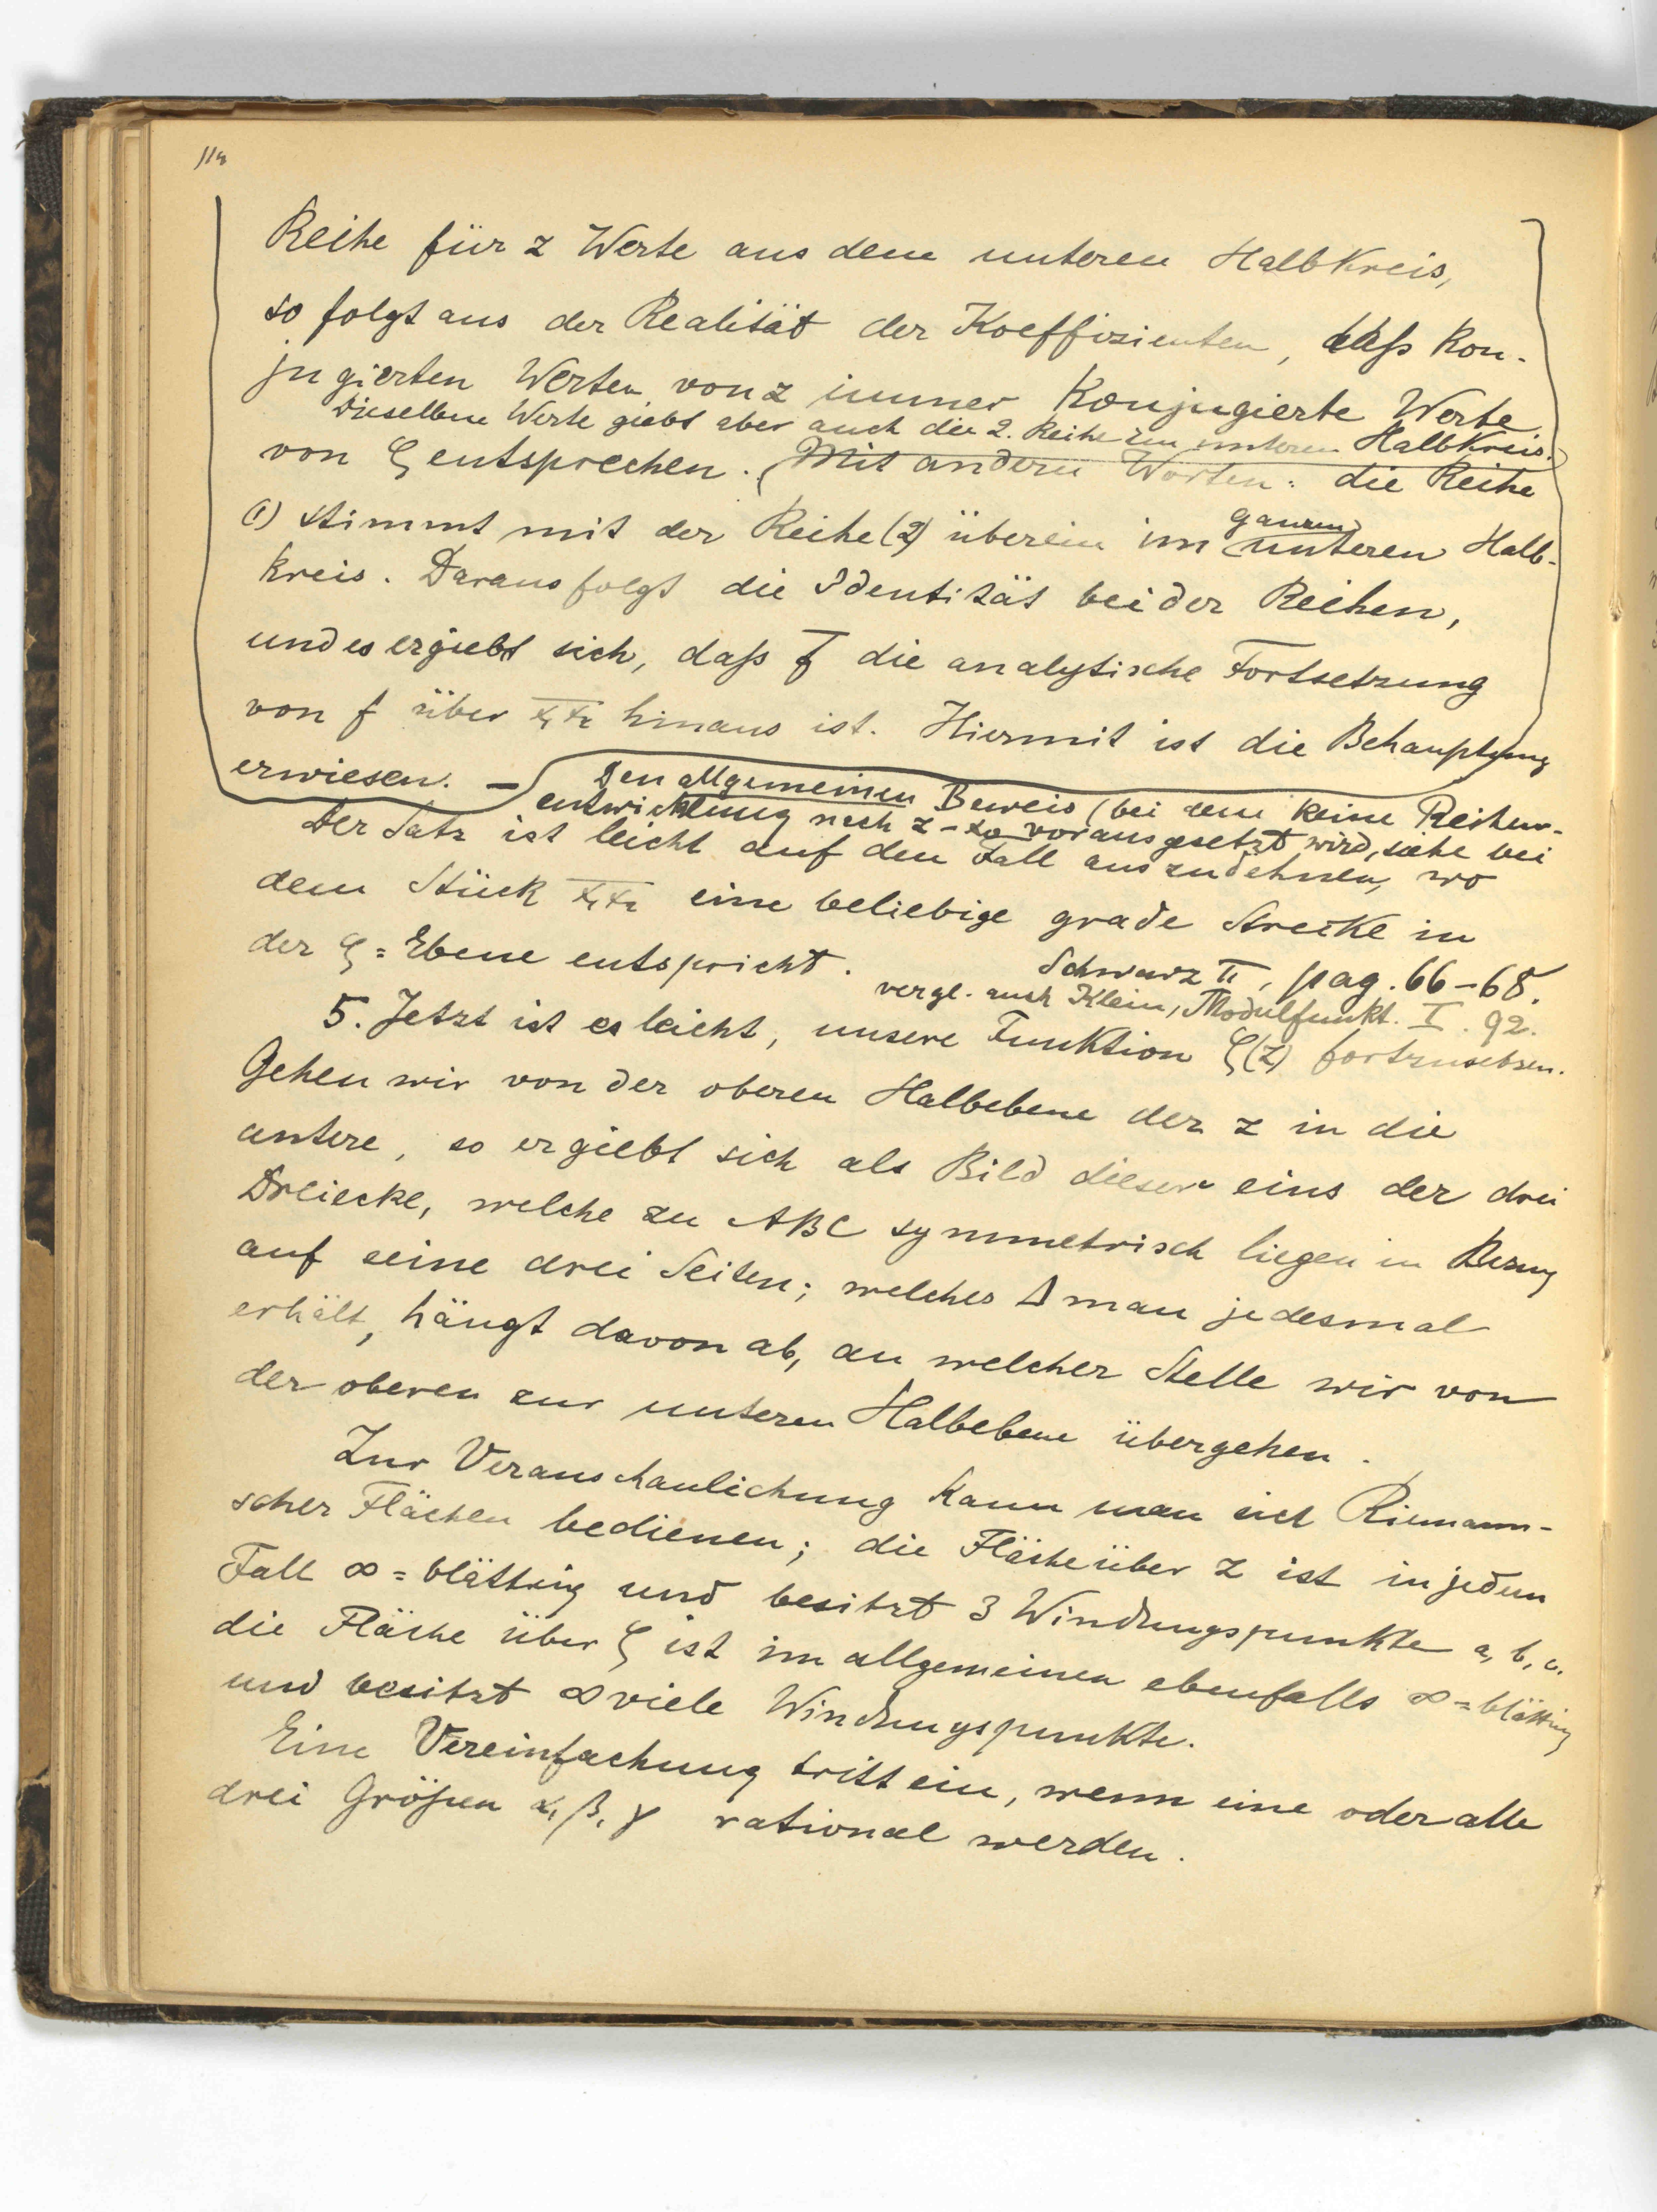 114
Reihe für z Werte aus dem unteren Halbkreis,
so folgt aus der Realität der Koeffizienten, daß kon-
jugierten Werten von z immer konjugierte Werte
Dieselben Werte giebt aber auch die 2. Reihe im unteren Halbkreis.
von ζ entsprechen. (Mit andern Worten: die Reihe
ganzen
(1) stimmt mit der Reihe (2) überein im unteren Halb-
kreis. Daraus folgt die Identität beider Reihen,
und es ergiebt sich, daß f̄ die analytische Fortsetzung
von f über x₁x₂ hinaus ist. Hiermit ist die Behauptung
erwiesen. – Den allgemeinen Beweis (bei dem keine Reihen-
entwicklung nach z-z₀ vorausgesetzt wird, siehe bei
Der Satz ist leicht auf den Fall auszudehnen, wo
dem Stück x₁x₂ eine beliebige grade Strecke in
der ζ=Ebene entspricht.
Schwarz II, pag. 66-68.
vergl. auch Klein, Modulfunkt. I. 92.
5. Jetzt ist es leicht, unsere Funktion ζ(z) fortzusetzen.
Gehen wir von der oberen Halbebene der z in die
untere, so ergiebt sich als Bild dieser eins der drei
Dreiecke, welche zu ABC symmetrisch liegen in Bezug
auf seine drei Seiten; welches Δ man jedesmal
erhält, hängt davon ab, an welcher Stelle wir von
der oberen zur unteren Halbebene übergehen.
Zur Veranschaulichung kann man sich Riemann-
scher Flächen bedienen; die Fläche über z ist in jedem
Fall ∞=blättrig und besitzt 3 Windungspunkte a, b, c.
die Fläche über ζ ist im allgemeinen ebenfalls ∞=blättrig
und besitzt ∞ viele Windungspunkte.
Eine Vereinfachung tritt ein, wenn eine oder alle
drei Größen α, β, γ rational werden.